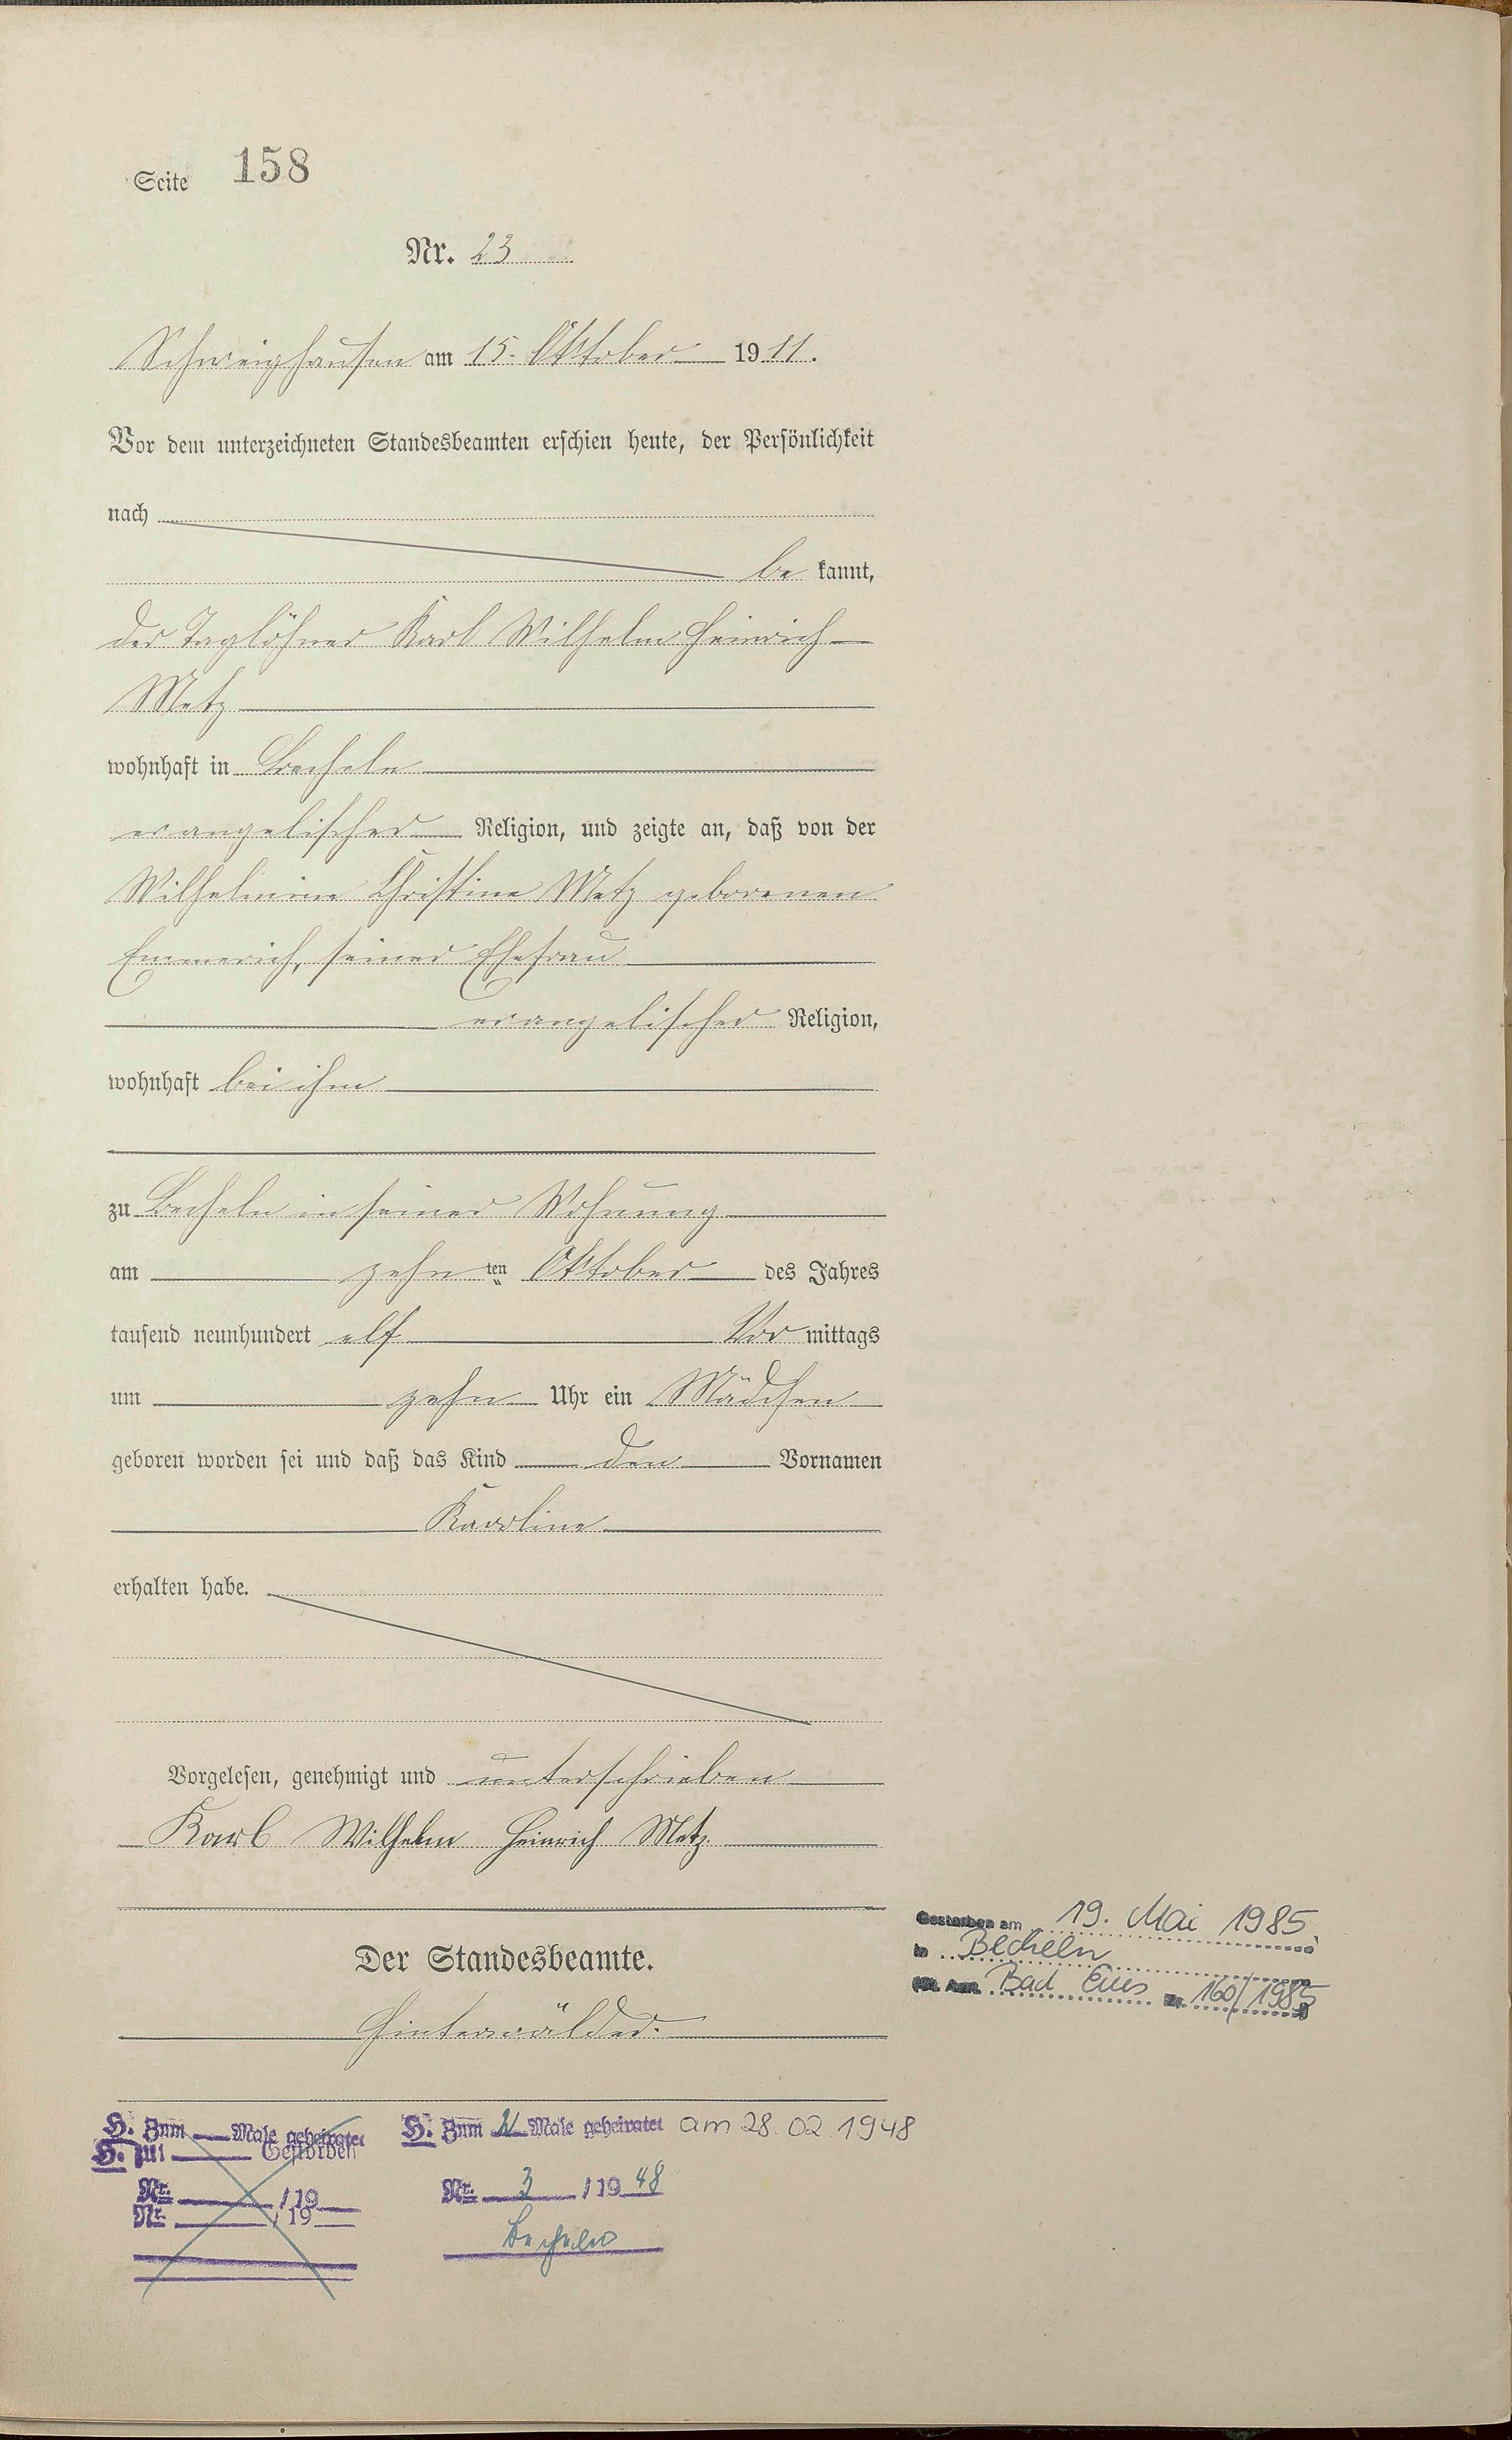 Seite 158
Nr. 23
Schweighausen am 15. Oktober 1911.
Vor dem unterzeichneten Standesbeamten erschien heute, der Persönlichkeit
nach
be kannt,
der Taglöhner Karl Wilhelm Heinrich
Metz
wohnhaft in Becheln
evangelischer Religion, und zeigte an, daß von der
Wilhelmine Christine Metz geborenen
Emmerich, seiner Ehefrau
evangelischer Religion,
wohnhaft bei ihm
zu Becheln in seiner Wohnung
am zehn ten Oktober des Jahres
tausend neunhundert elf Vor mittags
um zehn Uhr ein Mädchen
geboren worden sei und daß das Kind den Vornamen
Karoline
erhalten habe.
Vorgelesen, genehmigt und unterschrieben
Karl Wilhelm Heinrich Metz
Gestorben am 19. Mai 1985
in Becheln
Bad Ems Nr. 160/1985
Der Standesbeamte.
Hinterwälder.
H. Zum Male geheiratet
H. Gestorben
Nr. /19
Nr. /19
H. Zum Male geheiratet am 28.02.1948
Nr. 3 /1948
Becheln